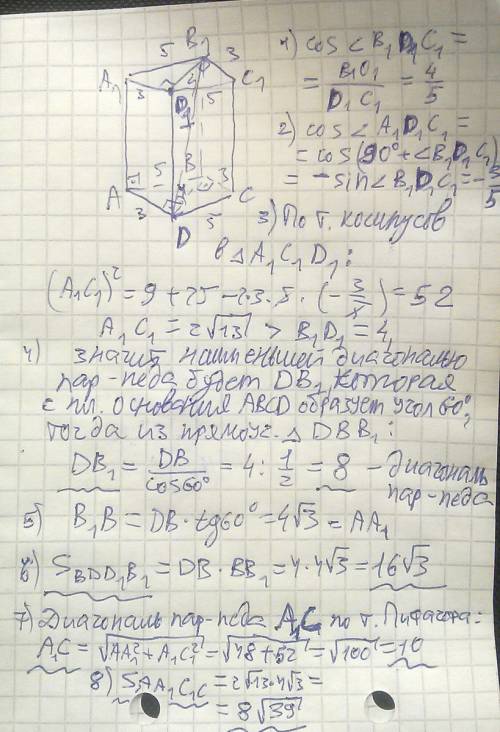 B₁
5 3
A₁ 4 C₁
3 D₁ 5
5 B 3
A C
3 5
D
1) cos < B₁D₁C₁ =
= B₁D₁ / D₁C₁ = 4/5
2) cos < A₁D₁C₁ =
= cos(90° + <B₁D₁C₁)
= -sin<B₁D₁C₁ = -3/5
3) По т. косинусов
в △ A₁C₁D₁:
(A₁C₁)² = 9 + 25 - 2·3·5·(-3/5) = 52
A₁C₁ = 2√13 > B₁D₁ = 4,
4) значит, наименьшей диагональю
пар-педа будет DB₁, которая
с пл. основания ABCD образует угол 60°,
тогда из прямоуг. △ DBB₁:
DB₁ = DB / cos60° = 4 : 1/2 = 8 - диагональ
пар-педа
5) B₁B = DB·tg60° = 4√3 = AA₁
6) S BDD₁B₁ = DB·BB₁ = 4·4√3 = 16√3
7) Диагональ пар-педа A₁C по т. Пифагора:
A₁C = √AA₁² + A₁C₁² = √48 + 52 = √100 = 10
8) S AA₁C₁C = 2√13·4√3 =
= 8√39